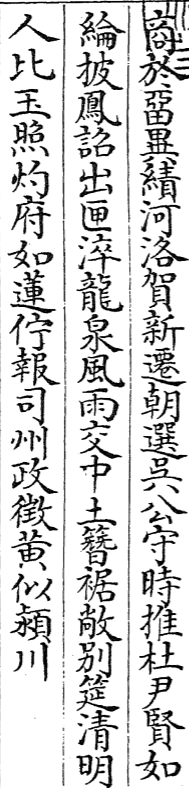 商於畱異績河洛賀新遷朝選吳公守時推杜尹賢如
綸披鳳詔出匣淬龍泉風雨交中土簪裾敞别筵清明
人比玉照灼府如蓮佇報司州政徴黄似潁川